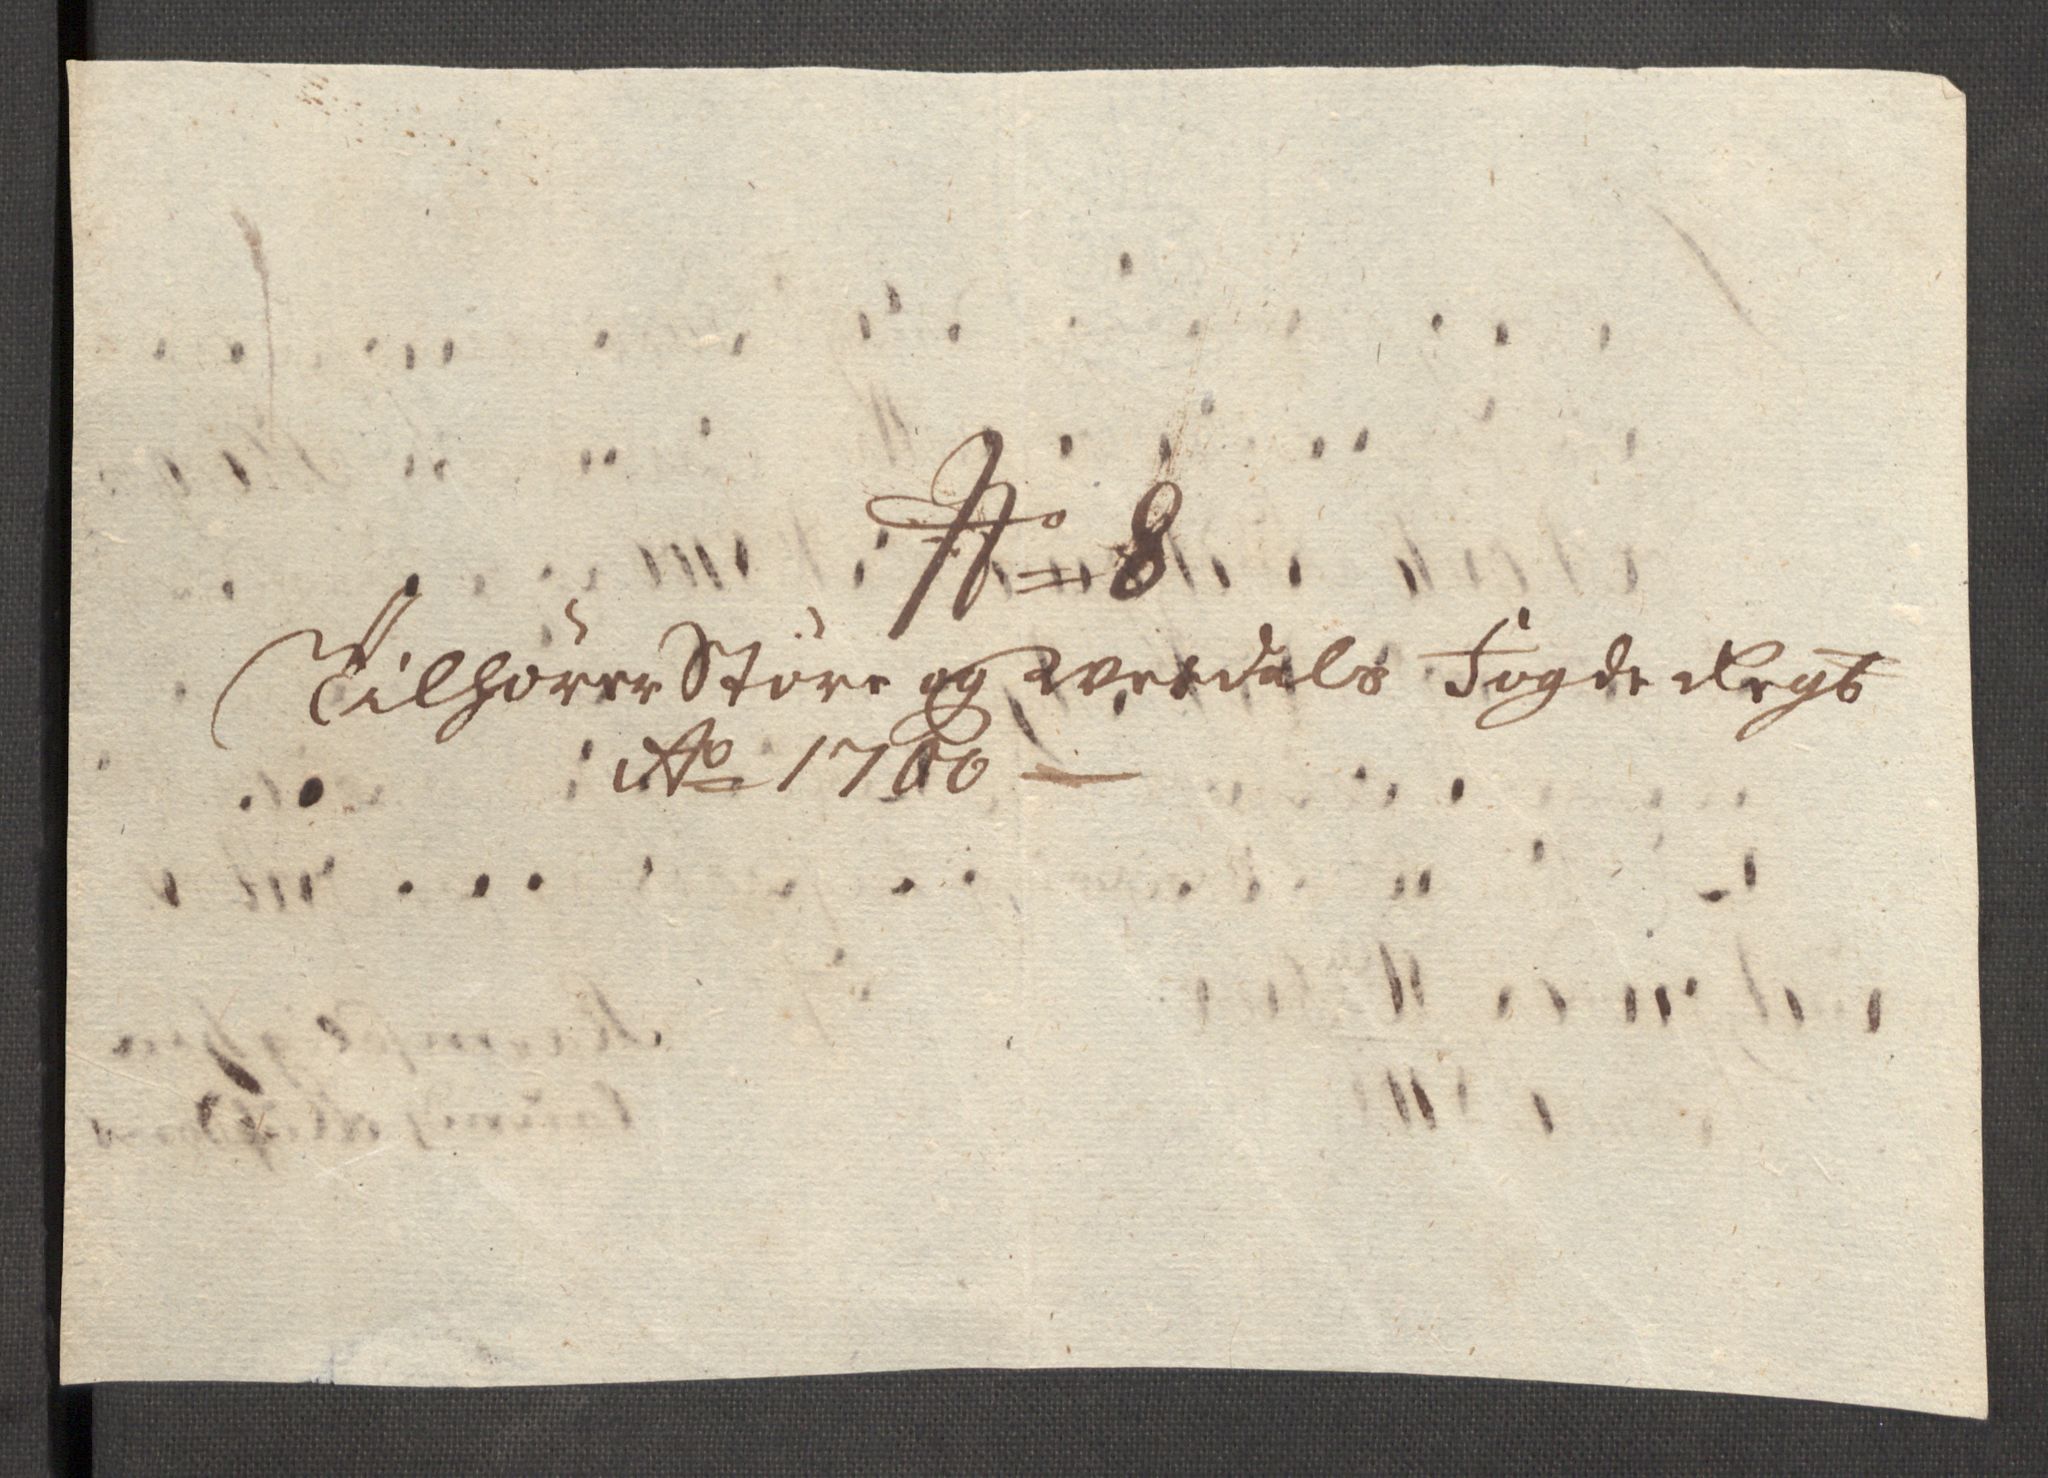 No 8
Tilhörer Störe og Werdals Fogde Regs
Ao 1700 —